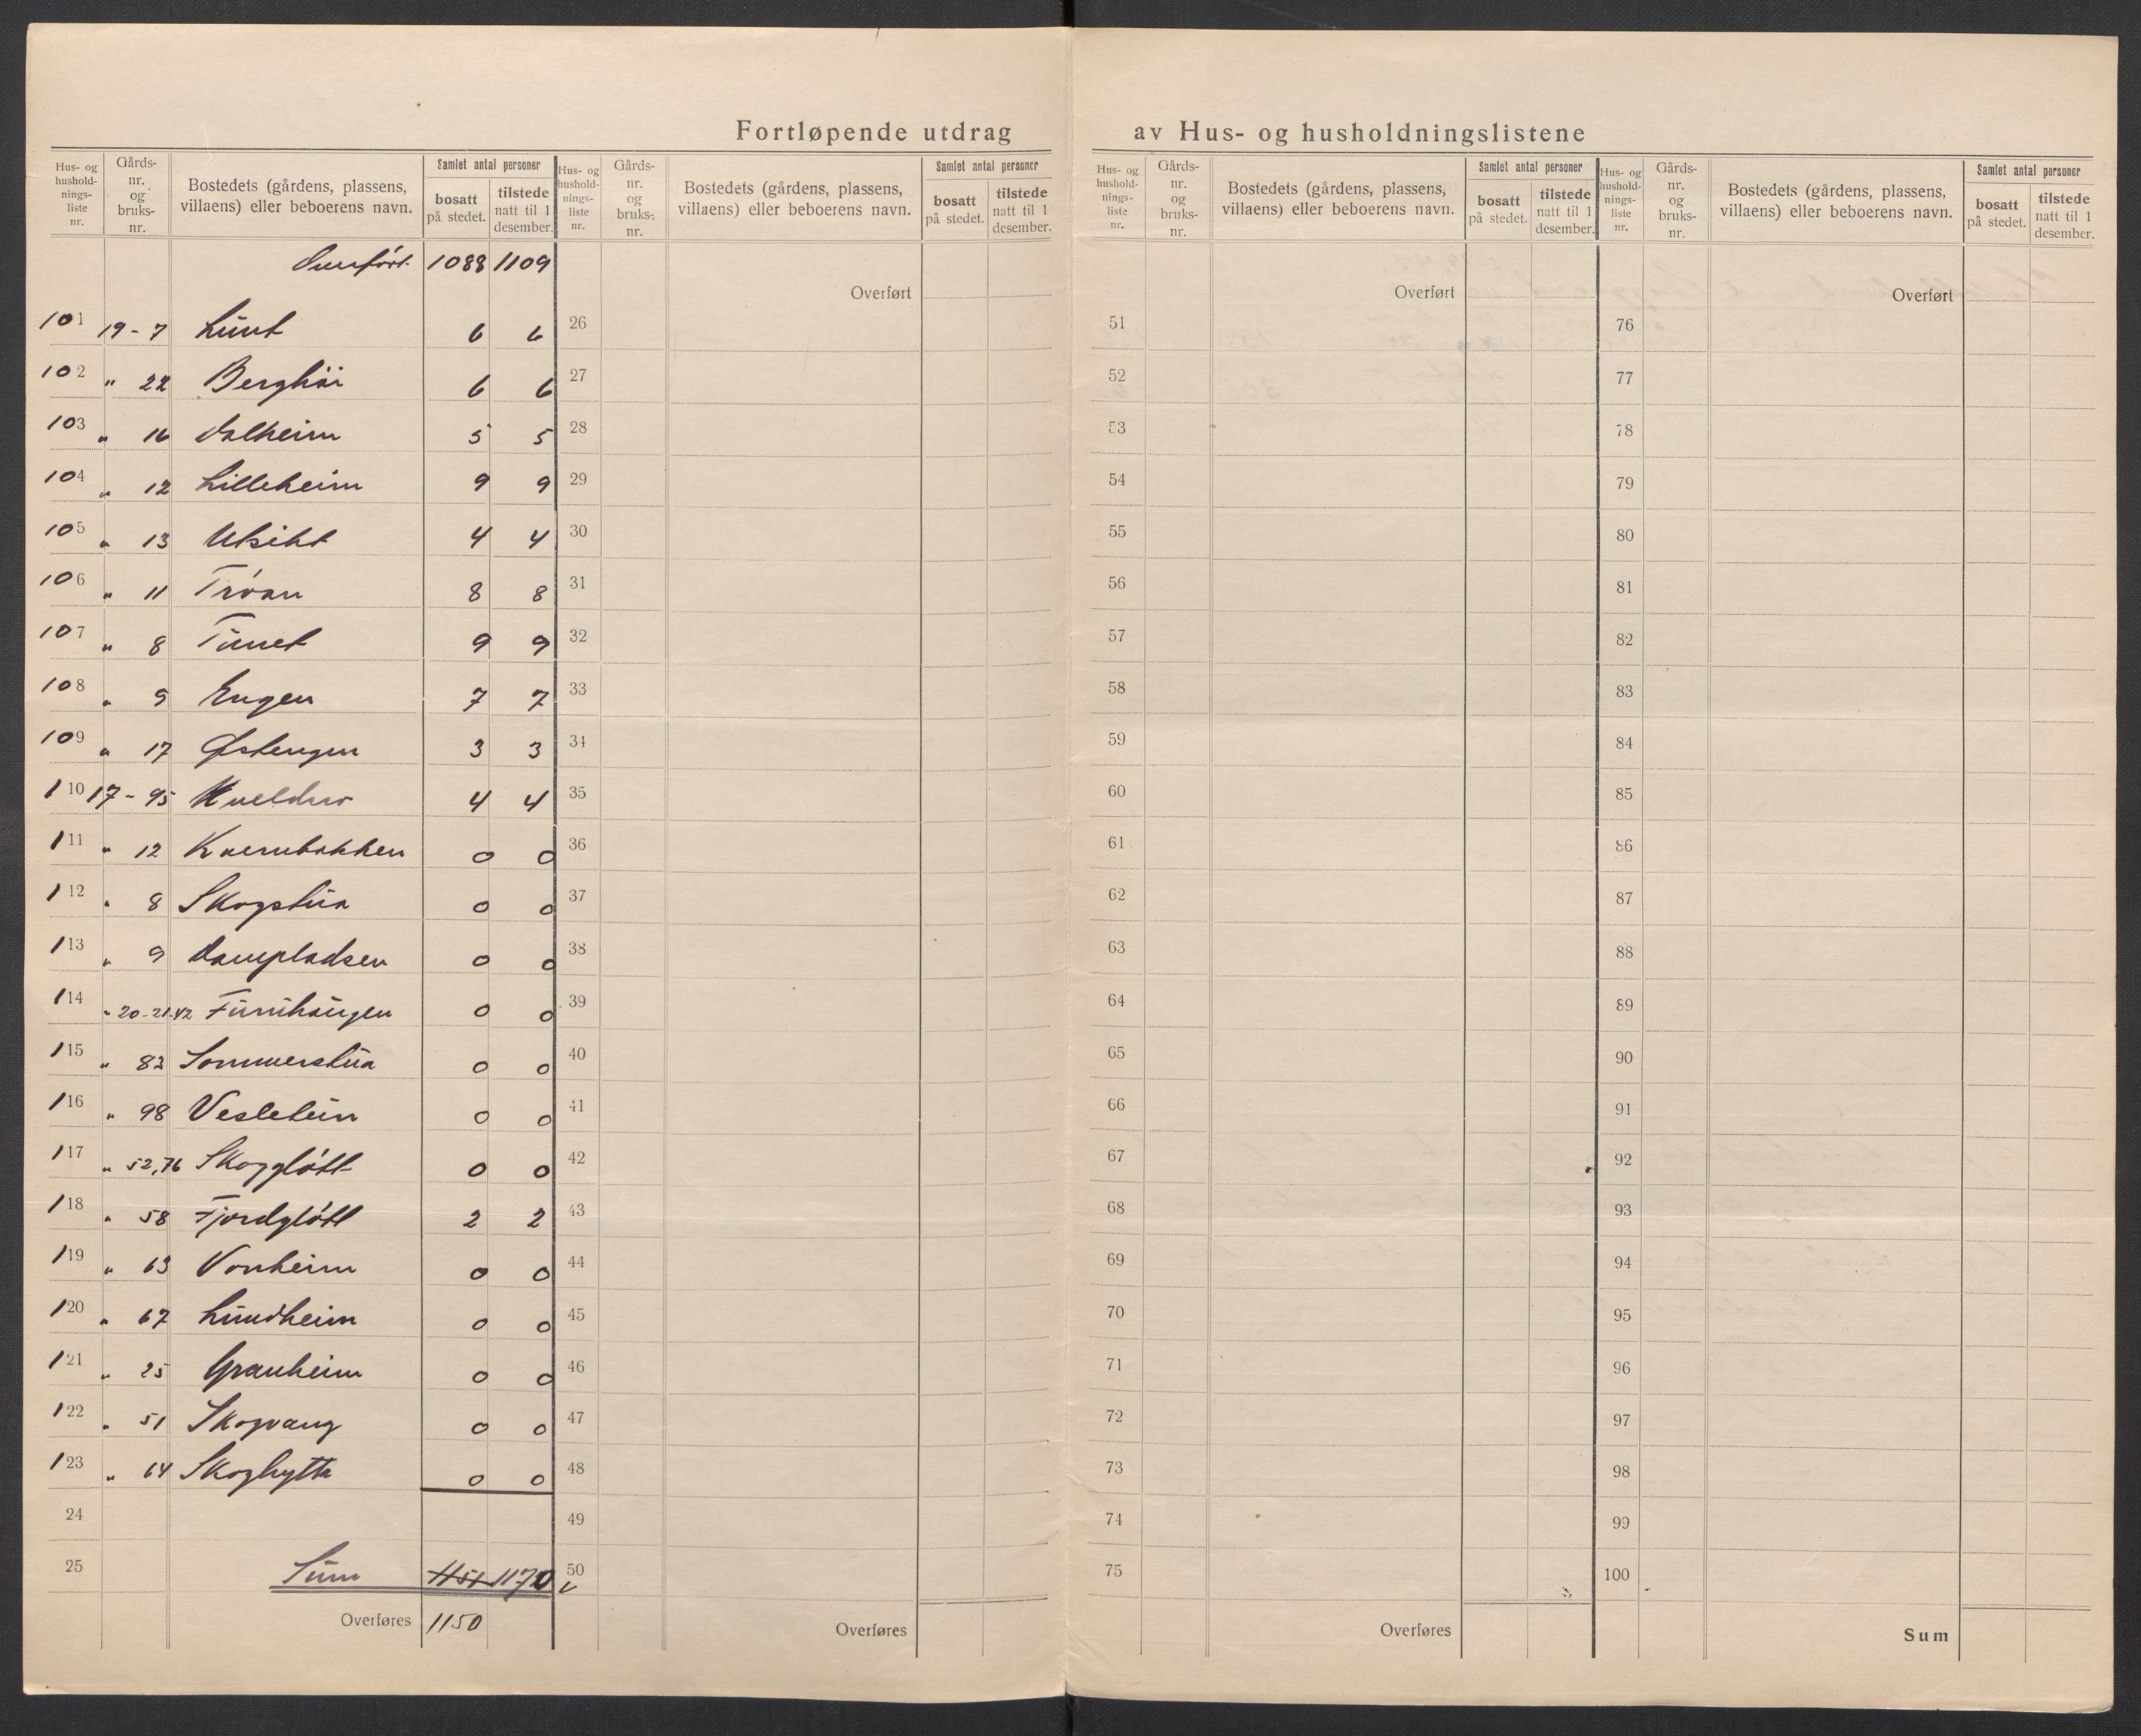 Fortløpende utdrag av Hus- og husholdningslistene
Hus- og husholdningsliste nr. Gårdsnr. og bruksnr. Bostedets (gårdens, plassens, villaens) eller beboerens navn. Samlet antal personer bosatt på stedet. tilstede natt til 1 desember.
1088 1109
101 19-7 Lunt 6 6
102 " 22 Berghói 6 6
103 " 16 Dalheim 5 5
104 " 12 Lilleheim 9 9
105 " 13 Utsikt 4 4
106 " 11 Tróan 8 8
107 " 8 Tunet 9 9
108 " 9 Engen 7 7
109 " 17 Østengen 3 3
110 17-95 Kveldsro 4 4
111 " 12 Kvernbakken 0 0
112 " 8 Skogstua 0 0
113 " 9 Dampladsen 0 0
114 " 20-21-42 Furuhaugen 0 0
115 " 83 Sommerstua 0 0
116 " 98 Vesletun 0 0
117 " 52,76 Skogglótt 0 0
118 " 58 Fjordglótt 2 2
119 " 63 Vonheim 0 0
120 " 67 Lundheim 0 0
121 " 25 Granheim 0 0
122 " 51 Skogvang 0 0
123 " 64 Skoghytta 0 0
24
25 Sum 1151 1170
Overføres 1150
Hus- og husholdningsliste nr. Gårdsnr. og bruksnr. Bostedets (gårdens, plassens, villaens) eller beboerens navn. Samlet antal personer bosatt på stedet. tilstede natt til 1 desember.
Overført
26
27
28
29
30
31
32
33
34
35
36
37
38
39
40
41
42
43
44
45
46
47
48
49
50
Overføres
Hus- og husholdningsliste nr. Gårdsnr. og bruksnr. Bostedets (gårdens, plassens, villaens) eller beboerens navn. Samlet antal personer bosatt på stedet. tilstede natt til 1 desember.
Overført
51
52
53
54
55
56
57
58
59
60
61
62
63
64
65
66
67
68
69
70
71
72
73
74
75
Overføres
Hus- og husholdningsliste nr. Gårdsnr. og bruksnr. Bostedets (gårdens, plassens, villaens) eller beboerens navn. Samlet antal personer bosatt på stedet. tilstede natt til 1 desember.
Overført
76
77
78
79
80
81
82
83
84
85
86
87
88
89
90
91
92
93
94
95
96
97
98
99
100
Sum